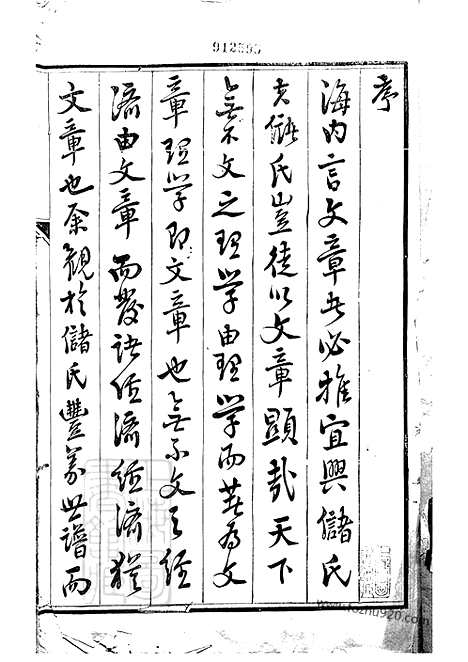 序
海内言文章者必推宜興儲氏
夫儲氏豈徒以文章顯哉天下
無不文之理學由理學而著為文
章理學即文章也無不文之經
濟由文章而發諸經濟經濟猶
文章也余觀於儲氏豐義世譜而
www.fozhu920.com